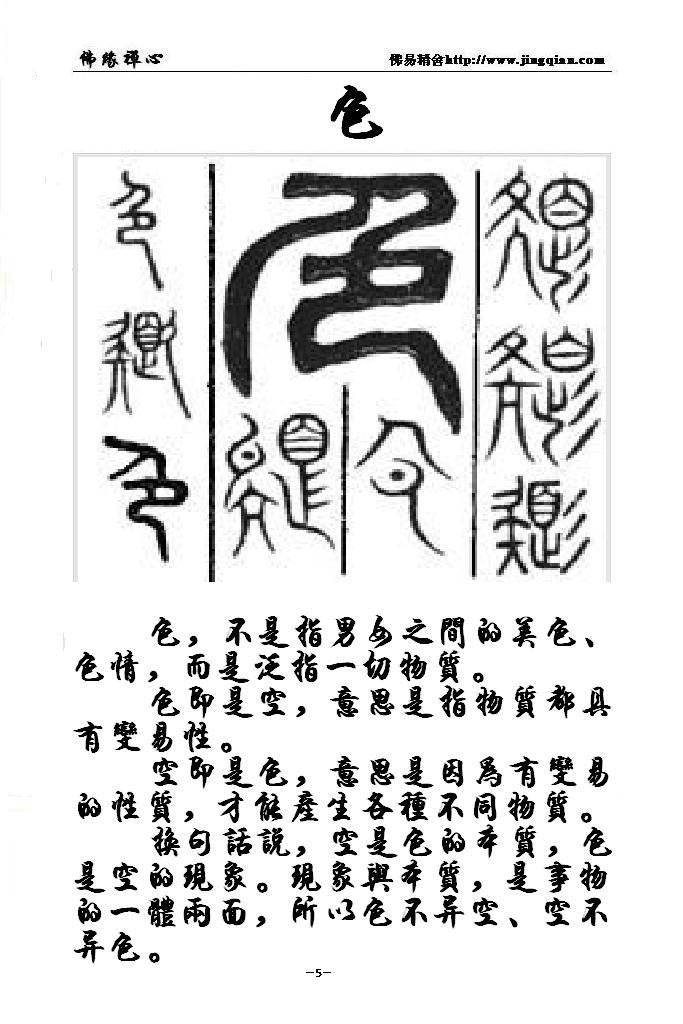 佛緣禪心
佛易精舍http://www.jingqian.com
色
色，不是指男女之間的美色、
色情，而是泛指一切物質。
色即是空，意思是指物質都具
有變易性。
空即是色，意思是因為有變易
的性質，才能產生各種不同物質。
換句話說，空是色的本質，色
是空的現象。現象與本質，是事物
的一體兩面，所以色不异空、空不
异色。
—5—